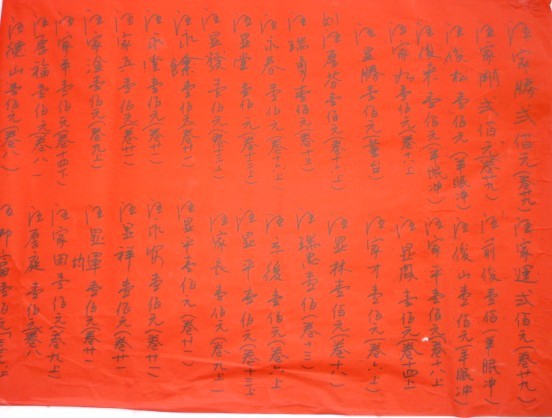 汪家勝 弍佰元(卷廿九)
汪家剛 弍佰元(卷廿九)
汪俊松 壹佰元(羊眠冲)
汪俊東 壹佰元(羊眠冲)
汪家和 壹佰元(卷六上)
汪显勝 壹佰元
汪厚芬 壹佰元(卷十六上)
汪瑞 壹佰元(卷十三)
汪永春 壹佰元(卷十六上)
汪显堂 壹佰元(卷十三上)
汪显俊 壹佰元(卷六上)
汪永餘 壹佰元(卷廿一)
汪永堂 壹佰元(卷廿一)
汪家五 壹佰元(卷九上)
汪家淦 壹佰元(卷九上)
汪家平 壹佰元(卷十四下)
汪厚福 壹佰元(卷八)
汪德山 壹佰元(卷八)
汪家運 弍佰元(卷廿九)
汪前俊 壹佰(羊眠冲)
汪俊山 壹佰元(羊眠冲)
汪家平 壹佰元(卷十八上)
汪显鳳 壹佰元(卷十四上)
汪家才 壹佰元(卷六上)
汪显林 壹佰元(卷十八)
汪瑞 壹佰元(卷十三)
汪立俊 壹佰元(卷六上)
汪显平 壹佰元(卷十三上)
汪家長 壹佰元(卷九上)
汪显平 壹佰元(卷廿一)
汪永安 壹佰元(卷廿一)
汪显祥 壹佰元(卷廿一)
汪显軍 壹佰元(卷廿一)
汪家田 壹佰元(卷九上)
汪厚庭 壹佰元(卷八)
富 壹佰元